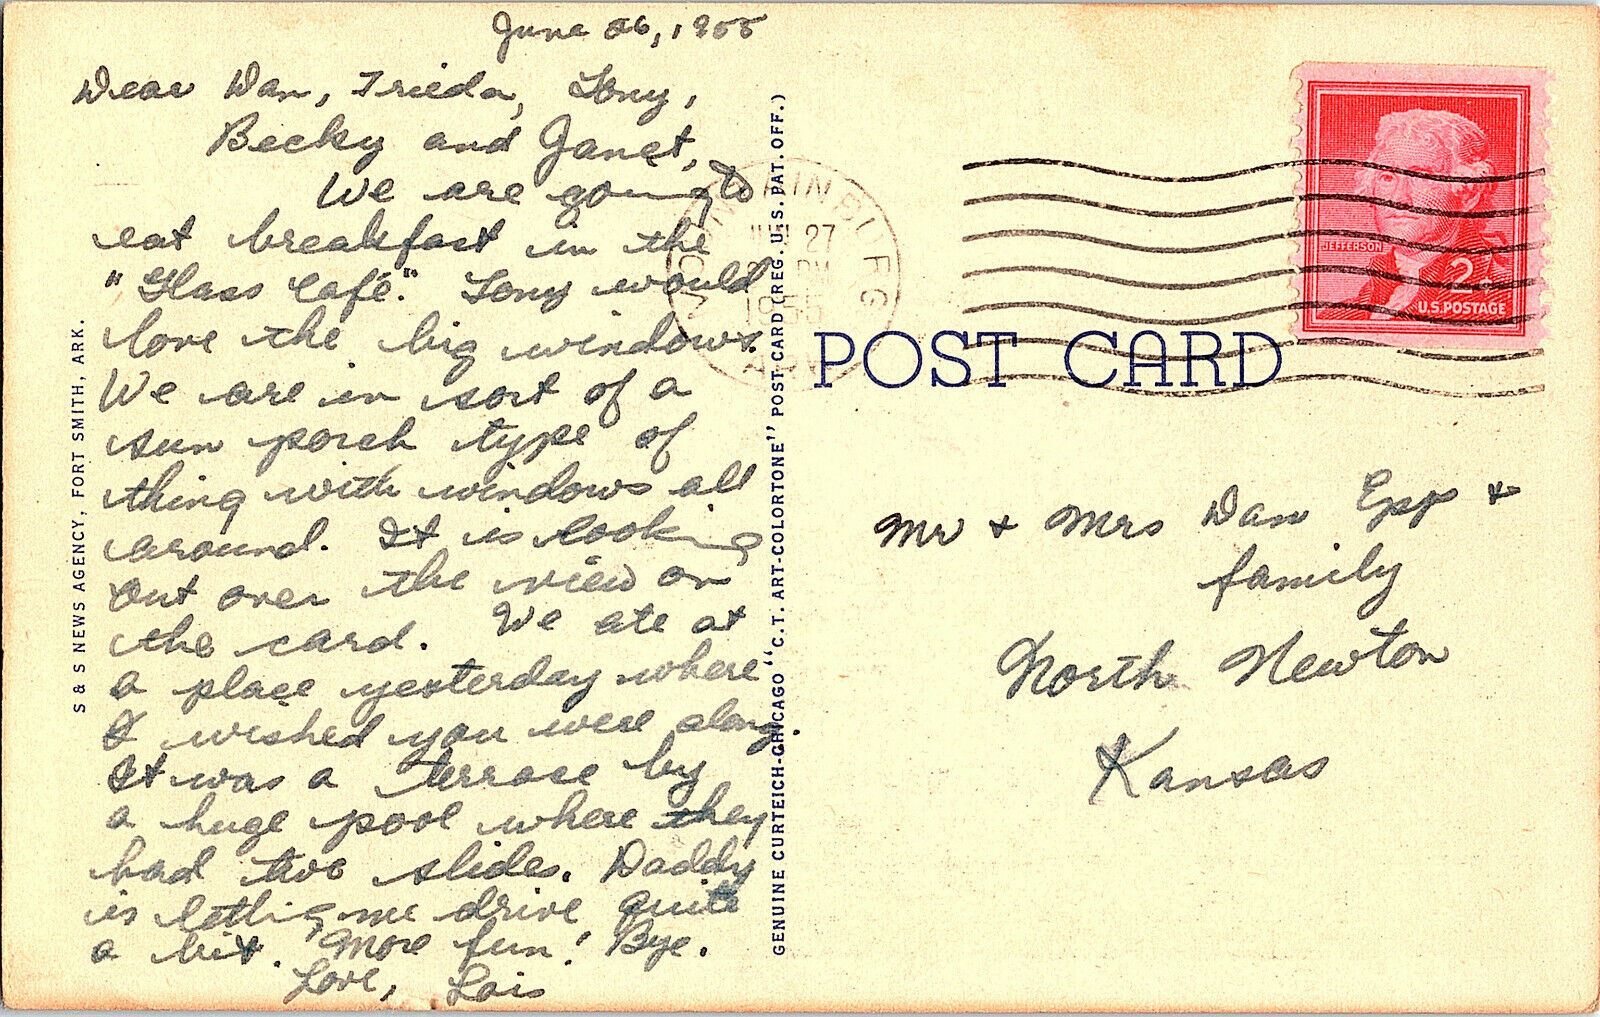 June 26, 1955
Dear Dan, Frieda, Tony,
Becky and Janet,
We are going to
eat breakfast in the
"Glass Café". Tony would
love the big windows.
We are in sort of a
sun porch type of
thing with windows all
around. It is looking
out over the view on
the card. We ate at
a place yesterday where
I wished you were along.
It was a terrace by
a huge pool where they
had two slides. Daddy
is letting me drive quite
a bit. More fun! Bye.
Love, Lois
S & S NEWS AGENCY, FORT SMITH, ARK.
GENUINE CURTEICH-CHICAGO "C.T. ART-COLORTONE" POST CARD (REG. U.S. PAT. OFF.)
JUN 27
PM
1955
ARK
POST CARD
JEFFERSON
2¢
U.S. POSTAGE
Mr + Mrs Dan Epp +
family
North Newton
Kansas